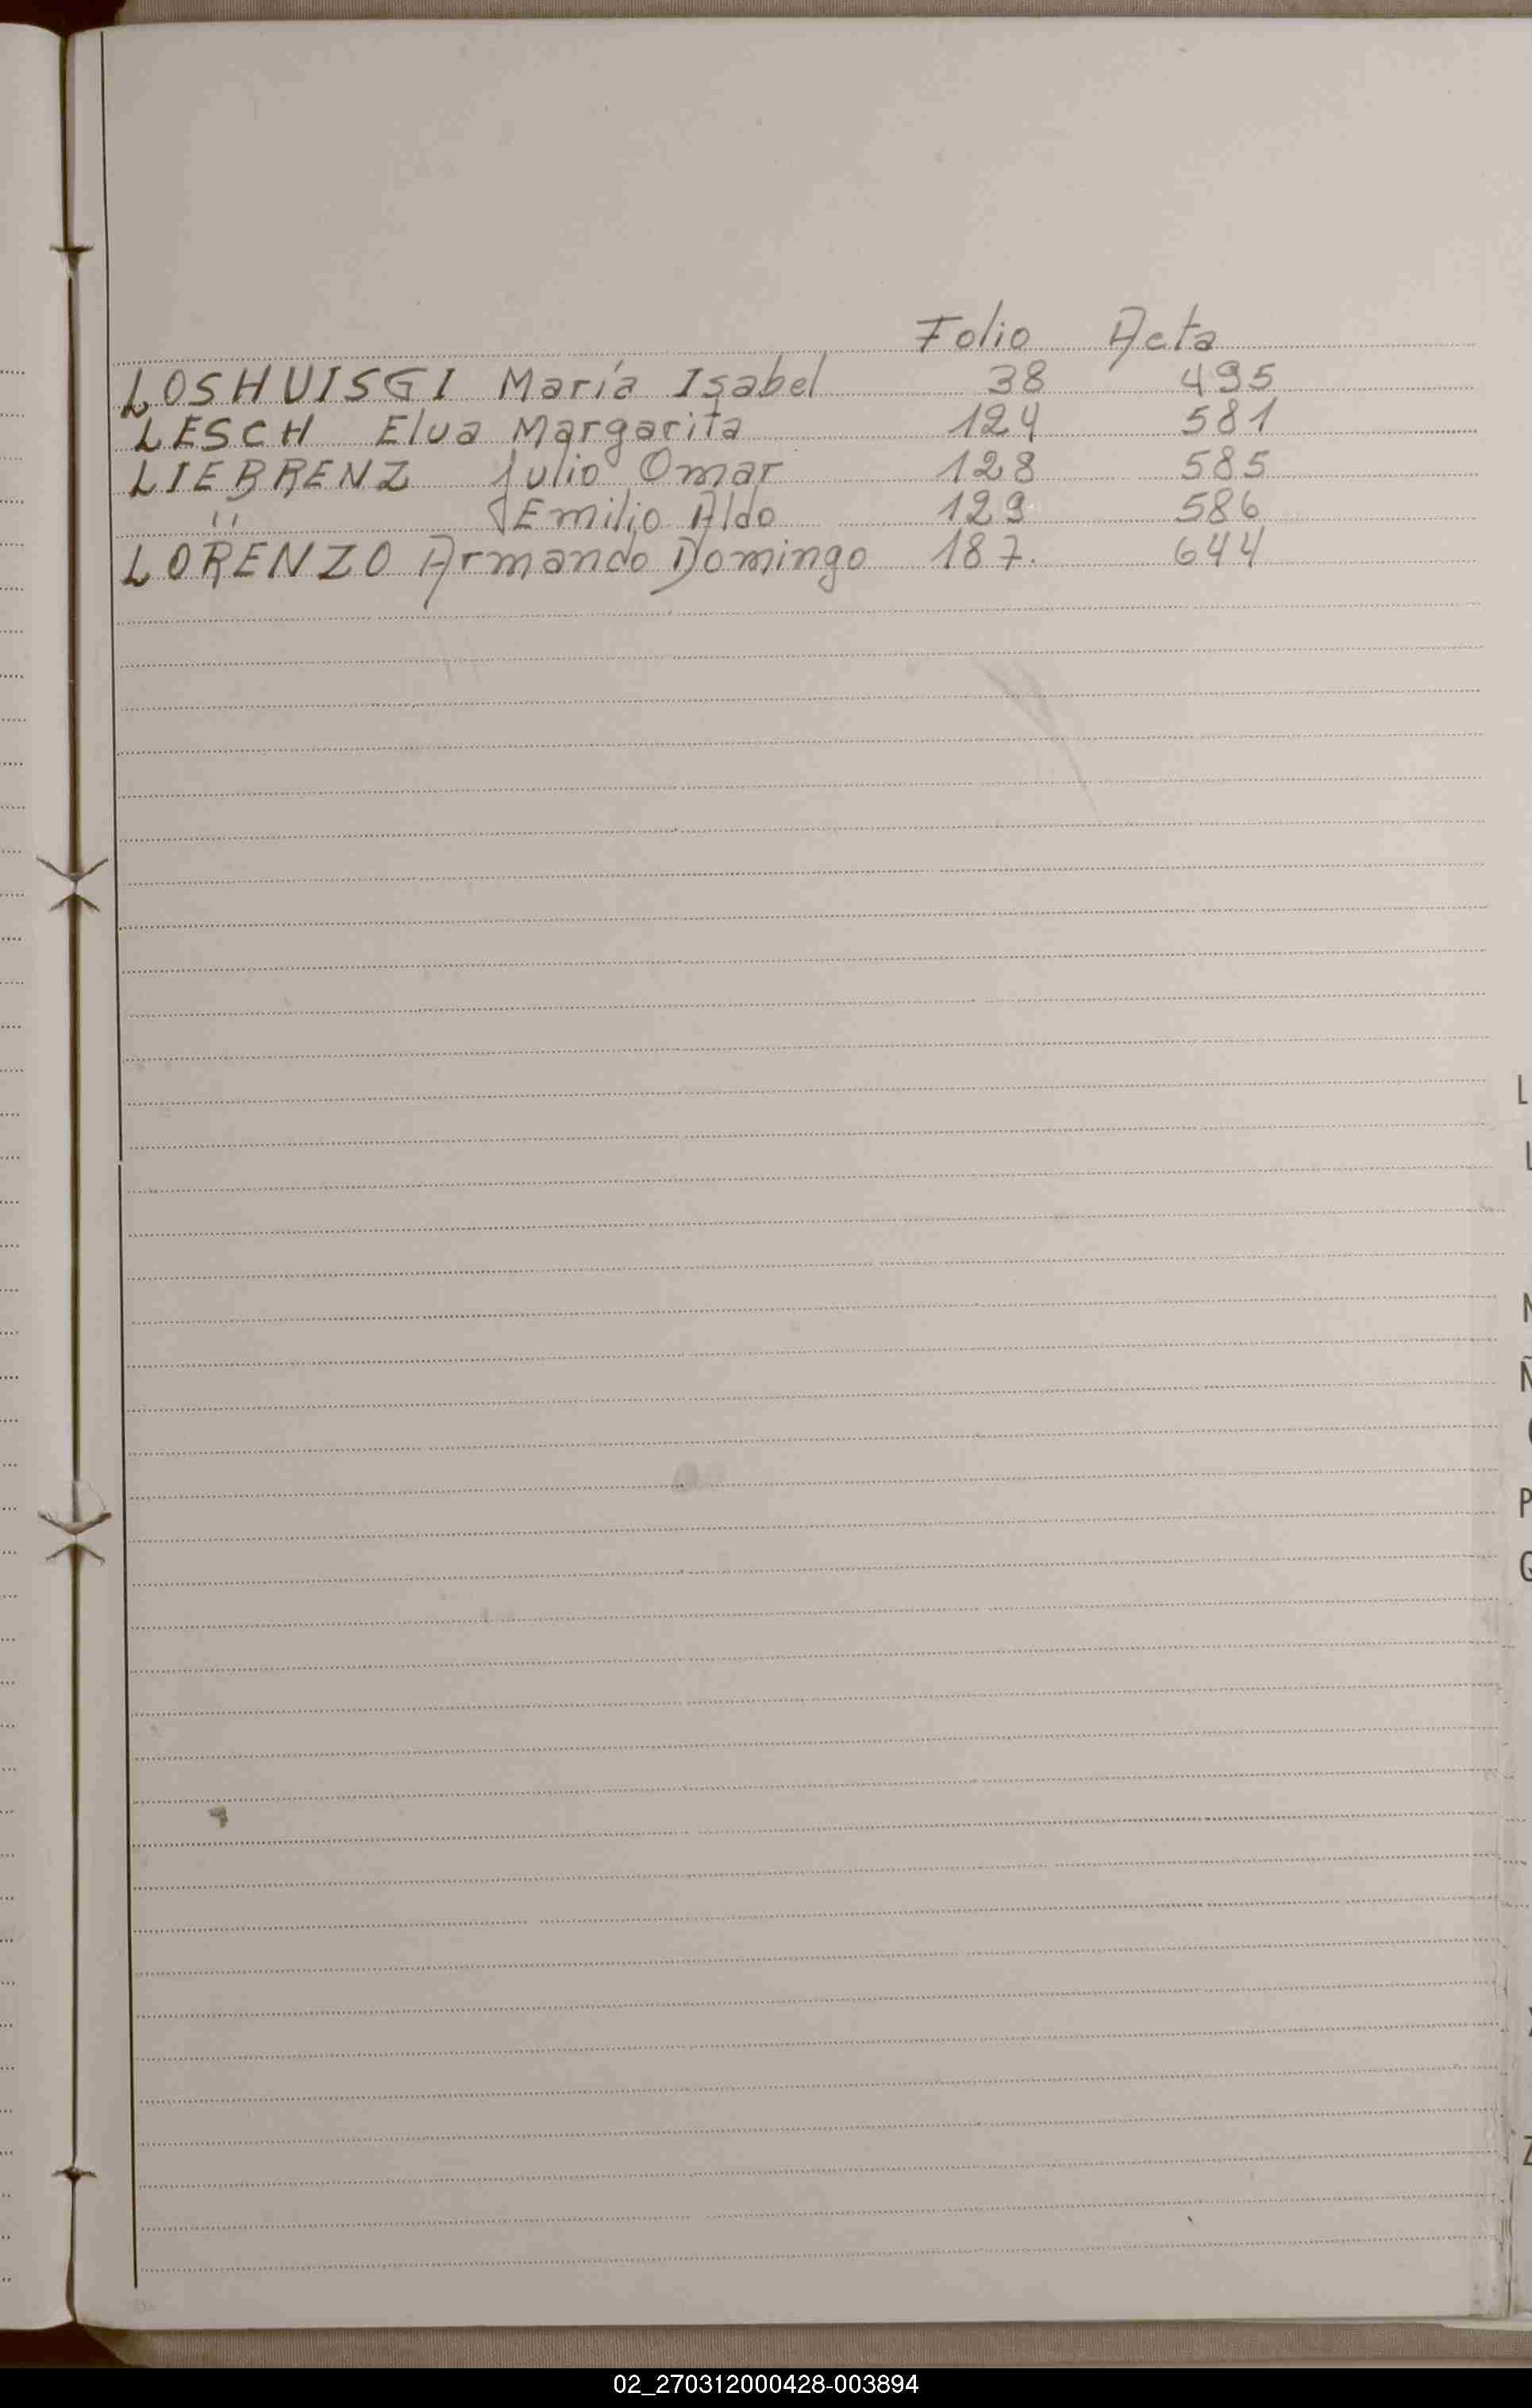 Folio Acta
LOSHUISGI María Isabel 38 495
LESCH Elva Margarita 124 581
LIEBRENZ Julio Omar 128 585
" Emilio Aldo 129 586
LORENZO Armando Domingo 187. 644
L
L
N
Ñ
P
Q
Z
02_270312000428-003894